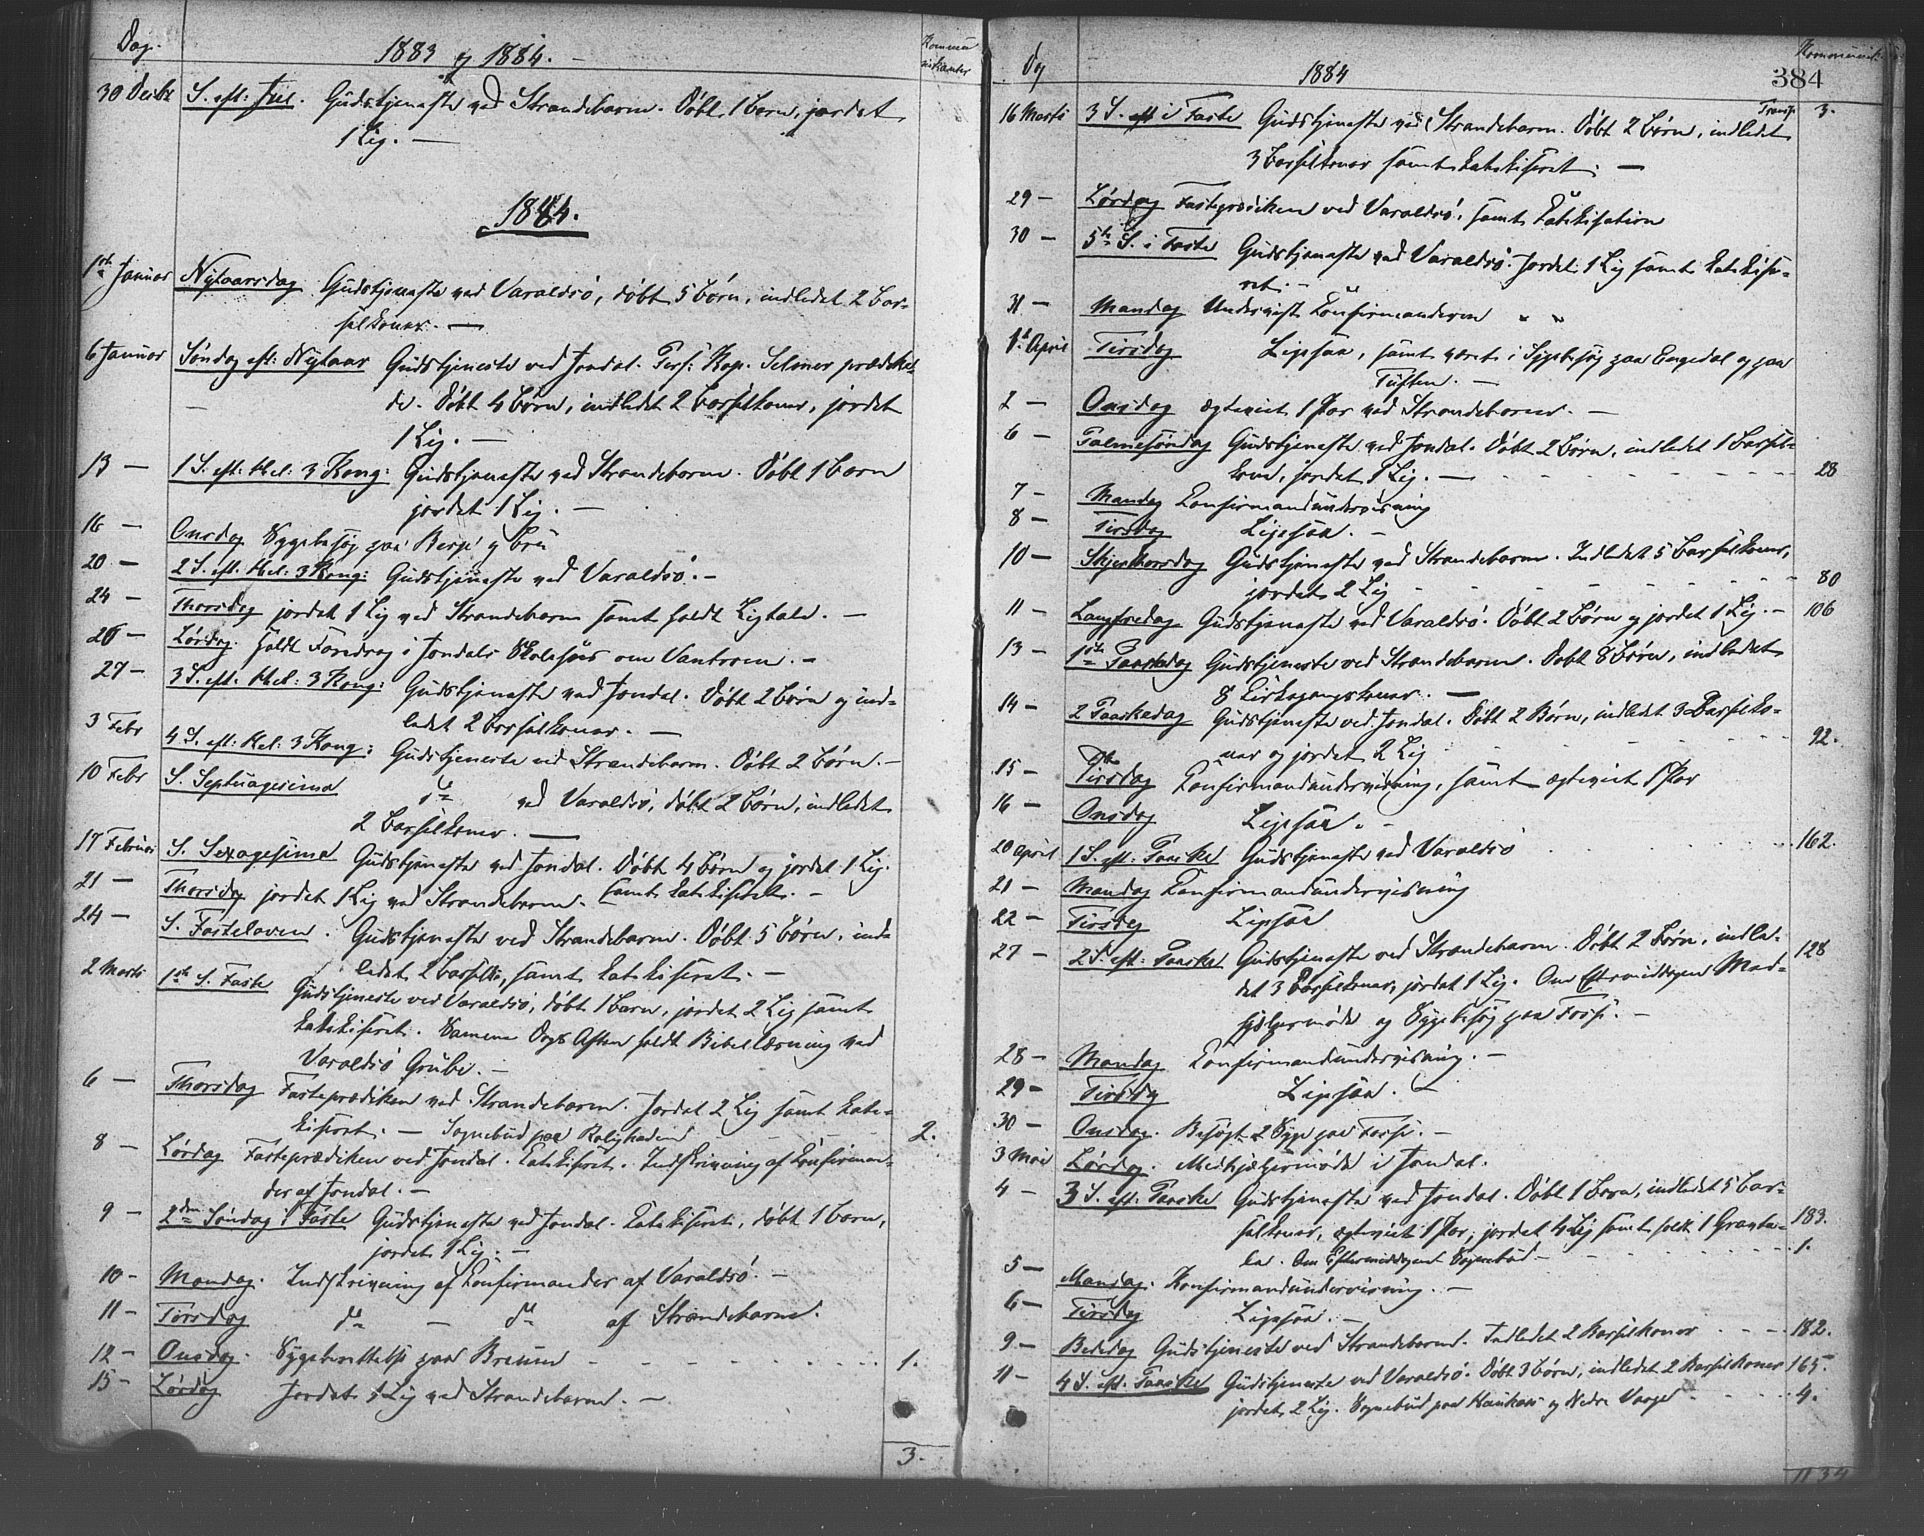 Dag. 1883 og 1884. – Kommu
nikanter
30 Decbr S. eft: Jul. Gudstjeneste ved Strandebarm. Döbt 1 barn, jordet
1 Lig. —
1884.
1ste Januar Nytaarsdag Gudstjeneste ved Varaldsö, döbt 5 börn, indledet 2 bar-
selkoner. —
6 Januar Söndag eft: Nytaar Gudstjeneste ved Jondal. Pers: Kap. Selmer prædike-
de. Döbt 4 börn, indledet 2 barselkoner, jordet
1 Lig. —
13 — 1 S. eft: Hel: 3 Kong: Gudstjeneste ved Strandebarm. Döbt 1 barn
jordet 1 Lig. —
16 — Onsdag Sygebesög paa Berge og
20 — 2 S. eft: Hel: 3 Kong: Gudstjeneste ved Varaldsö. —
24 — Thorsdag jordet 1 Lig ved Strandebarm samt holdt Ligtale. —
26 — Lördag. Holdt Foredrag i Jondals Skolehus om Vantroen. —
27 — 3 S. eft: Hel: 3 Kong: Gudstjeneste ved Jondal. Döbt 2 börn og ind-
ledet 2 barselkoner. —
3 Febr 4 S. eft: Hel: 3 Kong: Gudstjeneste ved Strandebarm. Döbt 2 börn. —
10 Febr S. Septuagesima do ved Varaldsö, döbt 2 börn, indledet
2 barselkoner. —
17 Februar S. Sexagesima Gudstjeneste ved Jondal. Döbt 4 börn og jordet 1 Lig.
21 — Thorsdag jordet 1 Lig ved Strandebarm. samt katekiseret. —
24 — S. Fastelaven. Gudstjeneste ved Strandebarm. Döbt 5 börn, ind-
ledet 2 barselk, samt katekiseret. —
2 Marts 1ste S. Faste Gudstjeneste ved Varaldsö, döbt 1 barn, jordet 2 Lig samt
katekiseret. Samme Dags Aften holdt Bibellæsning ved
Varaldsö Grube. —
6 — Thorsdag Fasteprædiken ved Strandebarm. Jordet 2 Lig samt kate-
kiseret. — Sognebud paa Roligheden 2.
8 — Lördag Fasteprædiken ved Jondal. Katekiseret. Indskrivning af Konfirman-
der af Jondal. —
9 — 2den Söndag i Faste Gudstjeneste ved Jondal. Katekiseret, döbt 1 barn,
jordet 1 Lig. —
10 — Mandag. Indskrivning af Konfirmander af Varaldsö. —
11 — Tirsdag do — do af Strandebarm.
12 — Onsdag. paa 1.
15 — Lördag Jordet 1 Lig ved Strandebarm. —
3.
Dag 1884 Kommunik.
384
Transp. 3.
16 Marts 3 S. i Faste Gudstjeneste ved Strandebarm. Döbt 2 Börn, indledet
3 Barselkoner samt katekiseret. —
29 — Lördag Fasteprædiken ved Varaldsö. samt Katekisation
30 — 5te S. i Faste Gudstjeneste ved Varaldsö. Jordet 1 Lig samt katekise-
ret. —
31 — Mandag Undervist Konfirmanderne " "
1ste April Tirsdag Ligesaa, samt været i Sygebesög paa Engedal og paa
Tuften. —
2 — Onsdag ægteviet 1 Par ved Strandebarm. —
6 — Palmesöndag Gudstjeneste ved Jondal. Döbt 2 Börn, indledet 1 Barsel-
kone, jordet 1 Lig. — 28
7 — Mandag Konfirmandundervisning
8 — Tirsdag Ligesaa. —
10 — Skjærthorsdag Gudstjeneste ved Strandebarm. Indledet 5 barselkoner,
jordet 2 Lig 80
11 — Langfredag Gudstjeneste ved Varaldsö. Döbt 2 Börn og jordet 1 Lig. — 106
13 — 1ste Paaskedag Gudstjeneste ved Strandebarm. Döbt 8 Börn, indledet
8 Kirkegangskoner. —
14 — 2 Paaskedag Gudstjeneste ved Jondal. Döbt 2 Börn, indledet 3 Barselko-
ner og jordet 2 Lig 92.
15 — Tirsdag Konfirmandundervisning, samt ægteviet 1 Par
16 — Onsdag Ligesaa. —
20 April 1 S. eft: Paaske Gudstjeneste ved Varaldsö 162.
21 — Mandag Konfirmandundervisning
22 — Tirsdag Ligesaa
27 — 2 S. eft: Paaske Gudstjeneste ved Strandebarm. Döbt 2 Börn, indle- 128
det 3 Barselkoner, jordet 1 Lig. Om Eftermiddagen Med-
hjælpermöde og Sygebesög paa Fosse. —
28 — Mandag Konfirmandundervisning. —
29 — Tirsdag Ligesaa. —
30 — Onsdag. Besögt 2 Syge paa Fosse. —
3 Mai Lördag. Medhjælpermöde i Jondal.
4 — 3 S. eft: Paaske Gudstjeneste ved Jondal. Döbt 1 Barn, indledet 5 bar-
selkoner, ægteviet 1 Par, jordet 4 Lig samt holdt 1 Gravta- 183.
le. Om Eftermiddagen Sognebud — 1.
5 — Mandag. Konfirmandundervisning. —
6 — Tirsdag Ligesaa. —
9 — Bededag Gudstjeneste ved Strandebarm. Indledet 2 Barselkoner 182.
11 — 4 S. eft: Paaske Gudstjeneste ved Varaldsö. Döbt 3 Börn, indledet 2 Barselkoner 165.
jordet 2 Lig. Sognebud paa og Nedre Vaage 4.
1134